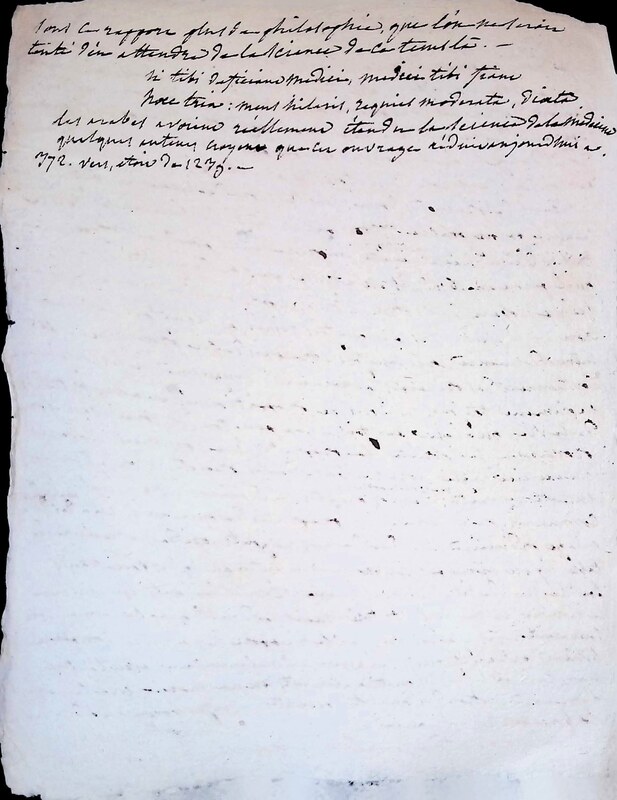 sous ce rapport plus de philosophie, que l'on ne seroit
tenté d'en attendre de la science de ce tems là. —
Si tibi deficiant medici, medici tibi fiant
haec tria: mens hilaris, requies moderata, diaeta
les arabes avoient réellement étendu la science de la medecine
quelques auteurs croyent que cet ouvrage réduit aujourdhui a
372. vers, etoit de 1239. —